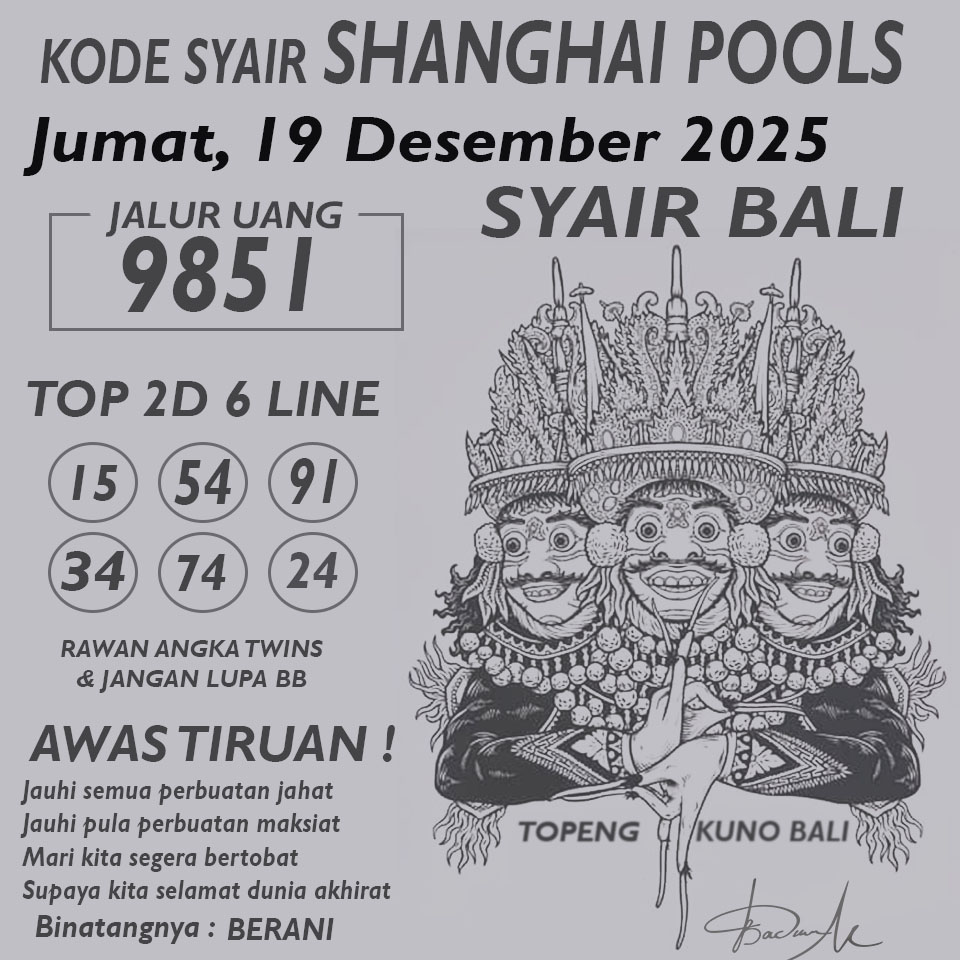 KODE SYAIR SHANGHAI POOLS
Jumat, 19 Desember 2025
SYAIR BALI
JALUR UANG
9851
TOP 2D 6 LINE
15 54 91
34 74 24
RAWAN ANGKA TWINS
& JANGAN LUPA BB
AWAS TIRUAN !
Jauhi semua perbuatan jahat
Jauhi pula perbuatan maksiat
Mari kita segera bertobat
Supaya kita selamat dunia akhirat
Binatangnya : BERANI
TOPENG KUNO BALI